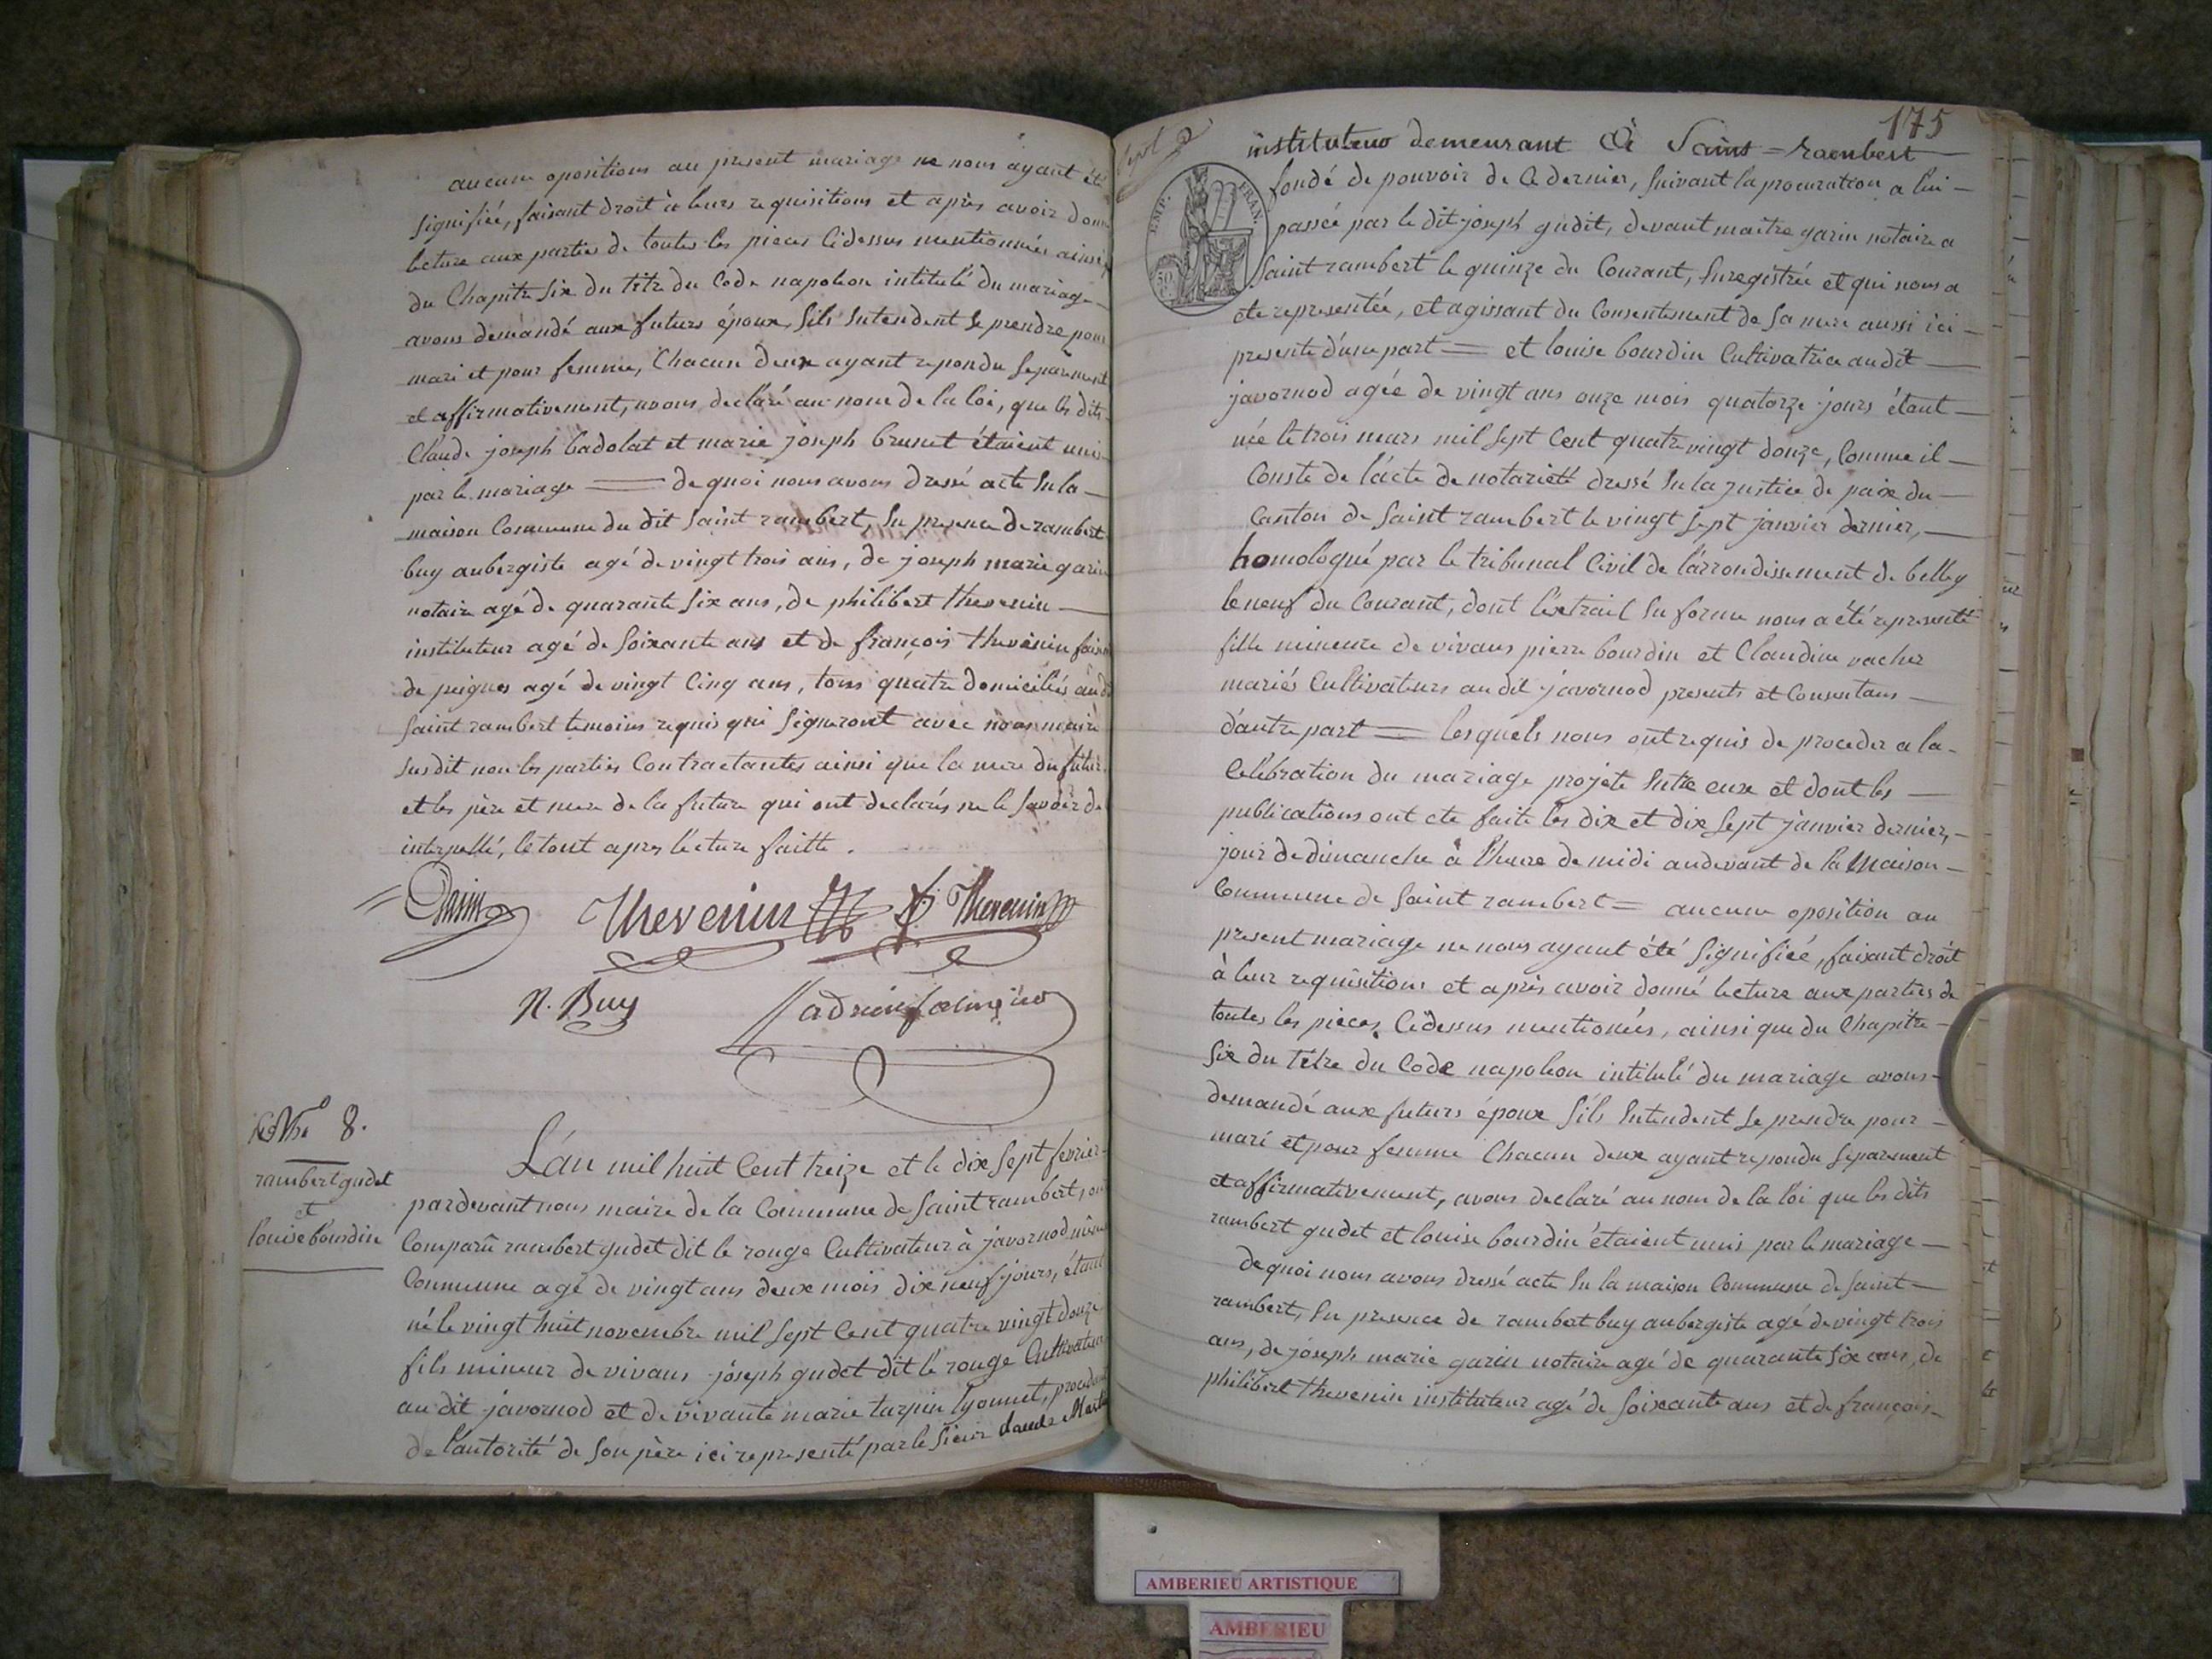 aucune opositions au present mariage ne nous ayant été
signifiée, faisant droit à leurs requisitions et après avoir donné
lecture aux parties de toutes les pieces cidessus mentionnées ainsi
du Chapitre six du titre du Code napoleon intitulé du mariage
avons demandé aux futurs époux, sils entendent se prendre pour
mari et pour femme, Chacun deux ayant repondu separement
et affirmativement, avons declaré au nom de la loi, que les dits
Claude joseph badolat et marie joseph brunet étaient unis
par le mariage = de quoi nous avons dressé acte en la
maison Commune du dit saint rambert, en presence de rambert
buy aubergiste agé de vingt trois ans, de joseph marie garin
notaire agé de quarante six ans, de philibert thevenin
instituteur agé de soixante ans et de françois thevenin
de peignes agé de vingt cinq ans, tous quatre domiciliés audit
saint rambert temoins requis qui signeront avec nous maire
susdit non les parties Contractantes ainsi que la mere du futur
et les père et mere de la future qui ont declarés ne le savoir de
interpellé, le tout apres lecture faitte.
Garin Thevenin Thevenin
R. Buy
8.
rambert gudet
et
louise bourdin
L'an mil huit Cent treize et le dix sept fevrier
pardevant nous maire de la Commune de saint rambert, ont
Comparû rambert gudet dit le rouge Cultivateur à javornod même
Commune agé de vingt ans deux mois dix neuf jours, étant
né le vingt huit novembre mil sept Cent quatre vingt douze
fils mineur de vivans joseph gudet dit le rouge Cultivateur
au dit javornod et de vivante marie turpin lyonnet,
de l'autorité de son père ici representé par le sieur Claude
175
instituteur demeurant à Saint=rambert
fondé de pouvoir de Ce dernier, suivant la procuration a lui
EMP. FRAN.
passée par le dit joseph gudit, devant maitre garin notaire a
50
saint rambert le quinze du Courant, enregistrée et qui nous a
ete representée, et agissant du Consentement de sa mere aussi ici
presente d'une part = et louise bourdin Cultivatrice audit
javornod agée de vingt ans onze mois quatorze jours étant
née le trois mars mil sept Cent quatre vingt douze, Comme il
Conste de l'acte de notarieté dressé en la justice de paix du
Canton de saint rambert le vingt sept janvier dernier,
homologué par le tribunal Civil de l'arrondissement de belley
le neuf du Courant, dont l'extrait en forme nous a été representé
fille mineure de vivans pierre bourdin et Claudine vacher
mariés Cultivateurs au dit javornod presents et Consentans
d'autre part = lesquels nous ont requis de proceder a la
Celebration du mariage projeté entre eux et dont les
publications ont ete faite les dix et dix sept janvier dernier,
jour de dimanche à l'heure de midi audevant de la maison
Commune de saint rambert = aucune oposition au
present mariage ne nous ayant été signifiée, faisant droit
à leur requisitions et après avoir donné lecture aux parties de
toutes les pieces Cidessus mentionées, ainsi que du Chapitre
six du titre du Code napoleon intitulé du mariage avons
demandé aux futurs époux sils entendent se prendre pour
mari et pour femme Chacun deux ayant repondu separement
et affirmativement, avons declaré au nom de la loi que les dits
rambert gudet et louise bourdin étaient unis par le mariage
de quoi nous avons dressé acte en la maison Commune de saint
rambert, en presence de rambert buy aubergiste agé de vingt trois
ans, de joseph marie garin notaire agé de quarante six ans, de
philibert thevenin instituteur agé de soixante ans et de françois
AMBERIEU ARTISTIQUE
AMBERIEU